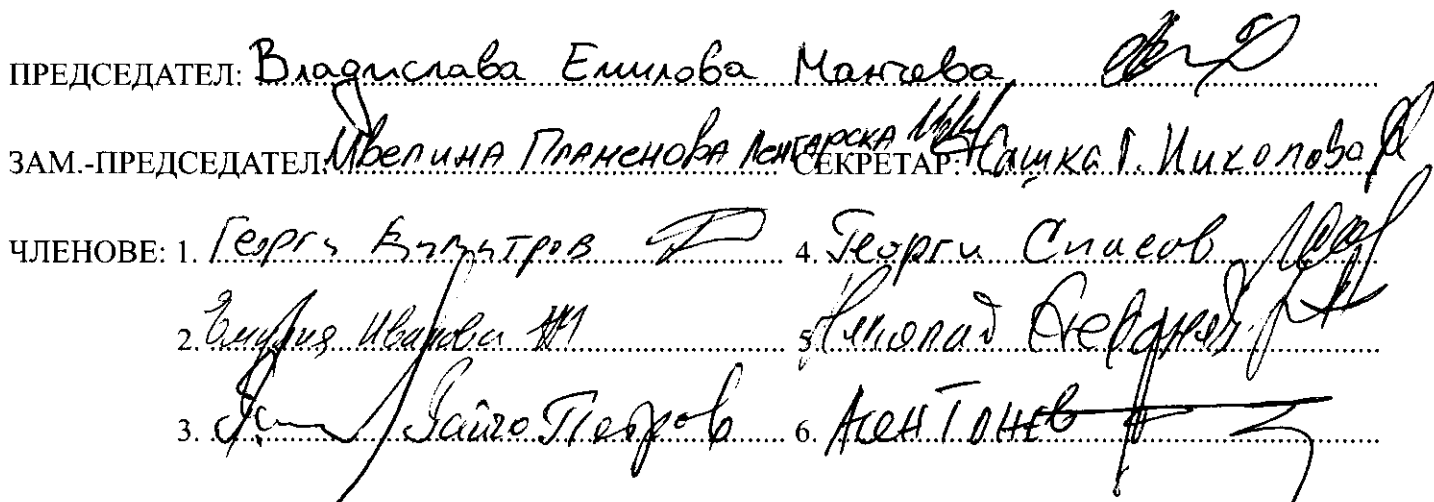 ПРЕДСЕДАТЕЛ: Владислава Емилова Манчева
ЗАМ.-ПРЕДСЕДАТЕЛ: Ивелина Пламенова СЕКРЕТАР: Сашка Г. Николова
ЧЛЕНОВЕ: 1. Георги Димитров 4. Георги Спасов
2. Емилия Иванова 5. Николай
3. Райчо Петров 6. Асен Тонев